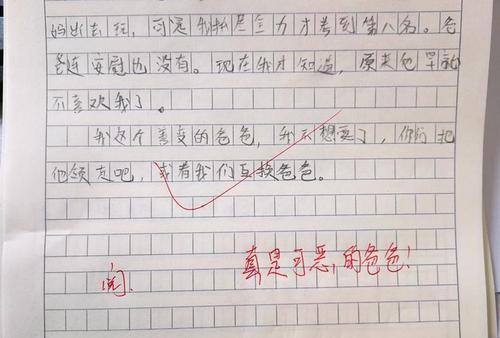 妈出去玩，可是我拼尽全力才考到第八名。爸
爸连安慰也没有。现在我才知道，原来他早就
不喜欢我了。
我这个善变的爸爸，我不想要了，你们把
他领走吧，或者我们互换爸爸。
真是可恶的爸爸！
阅